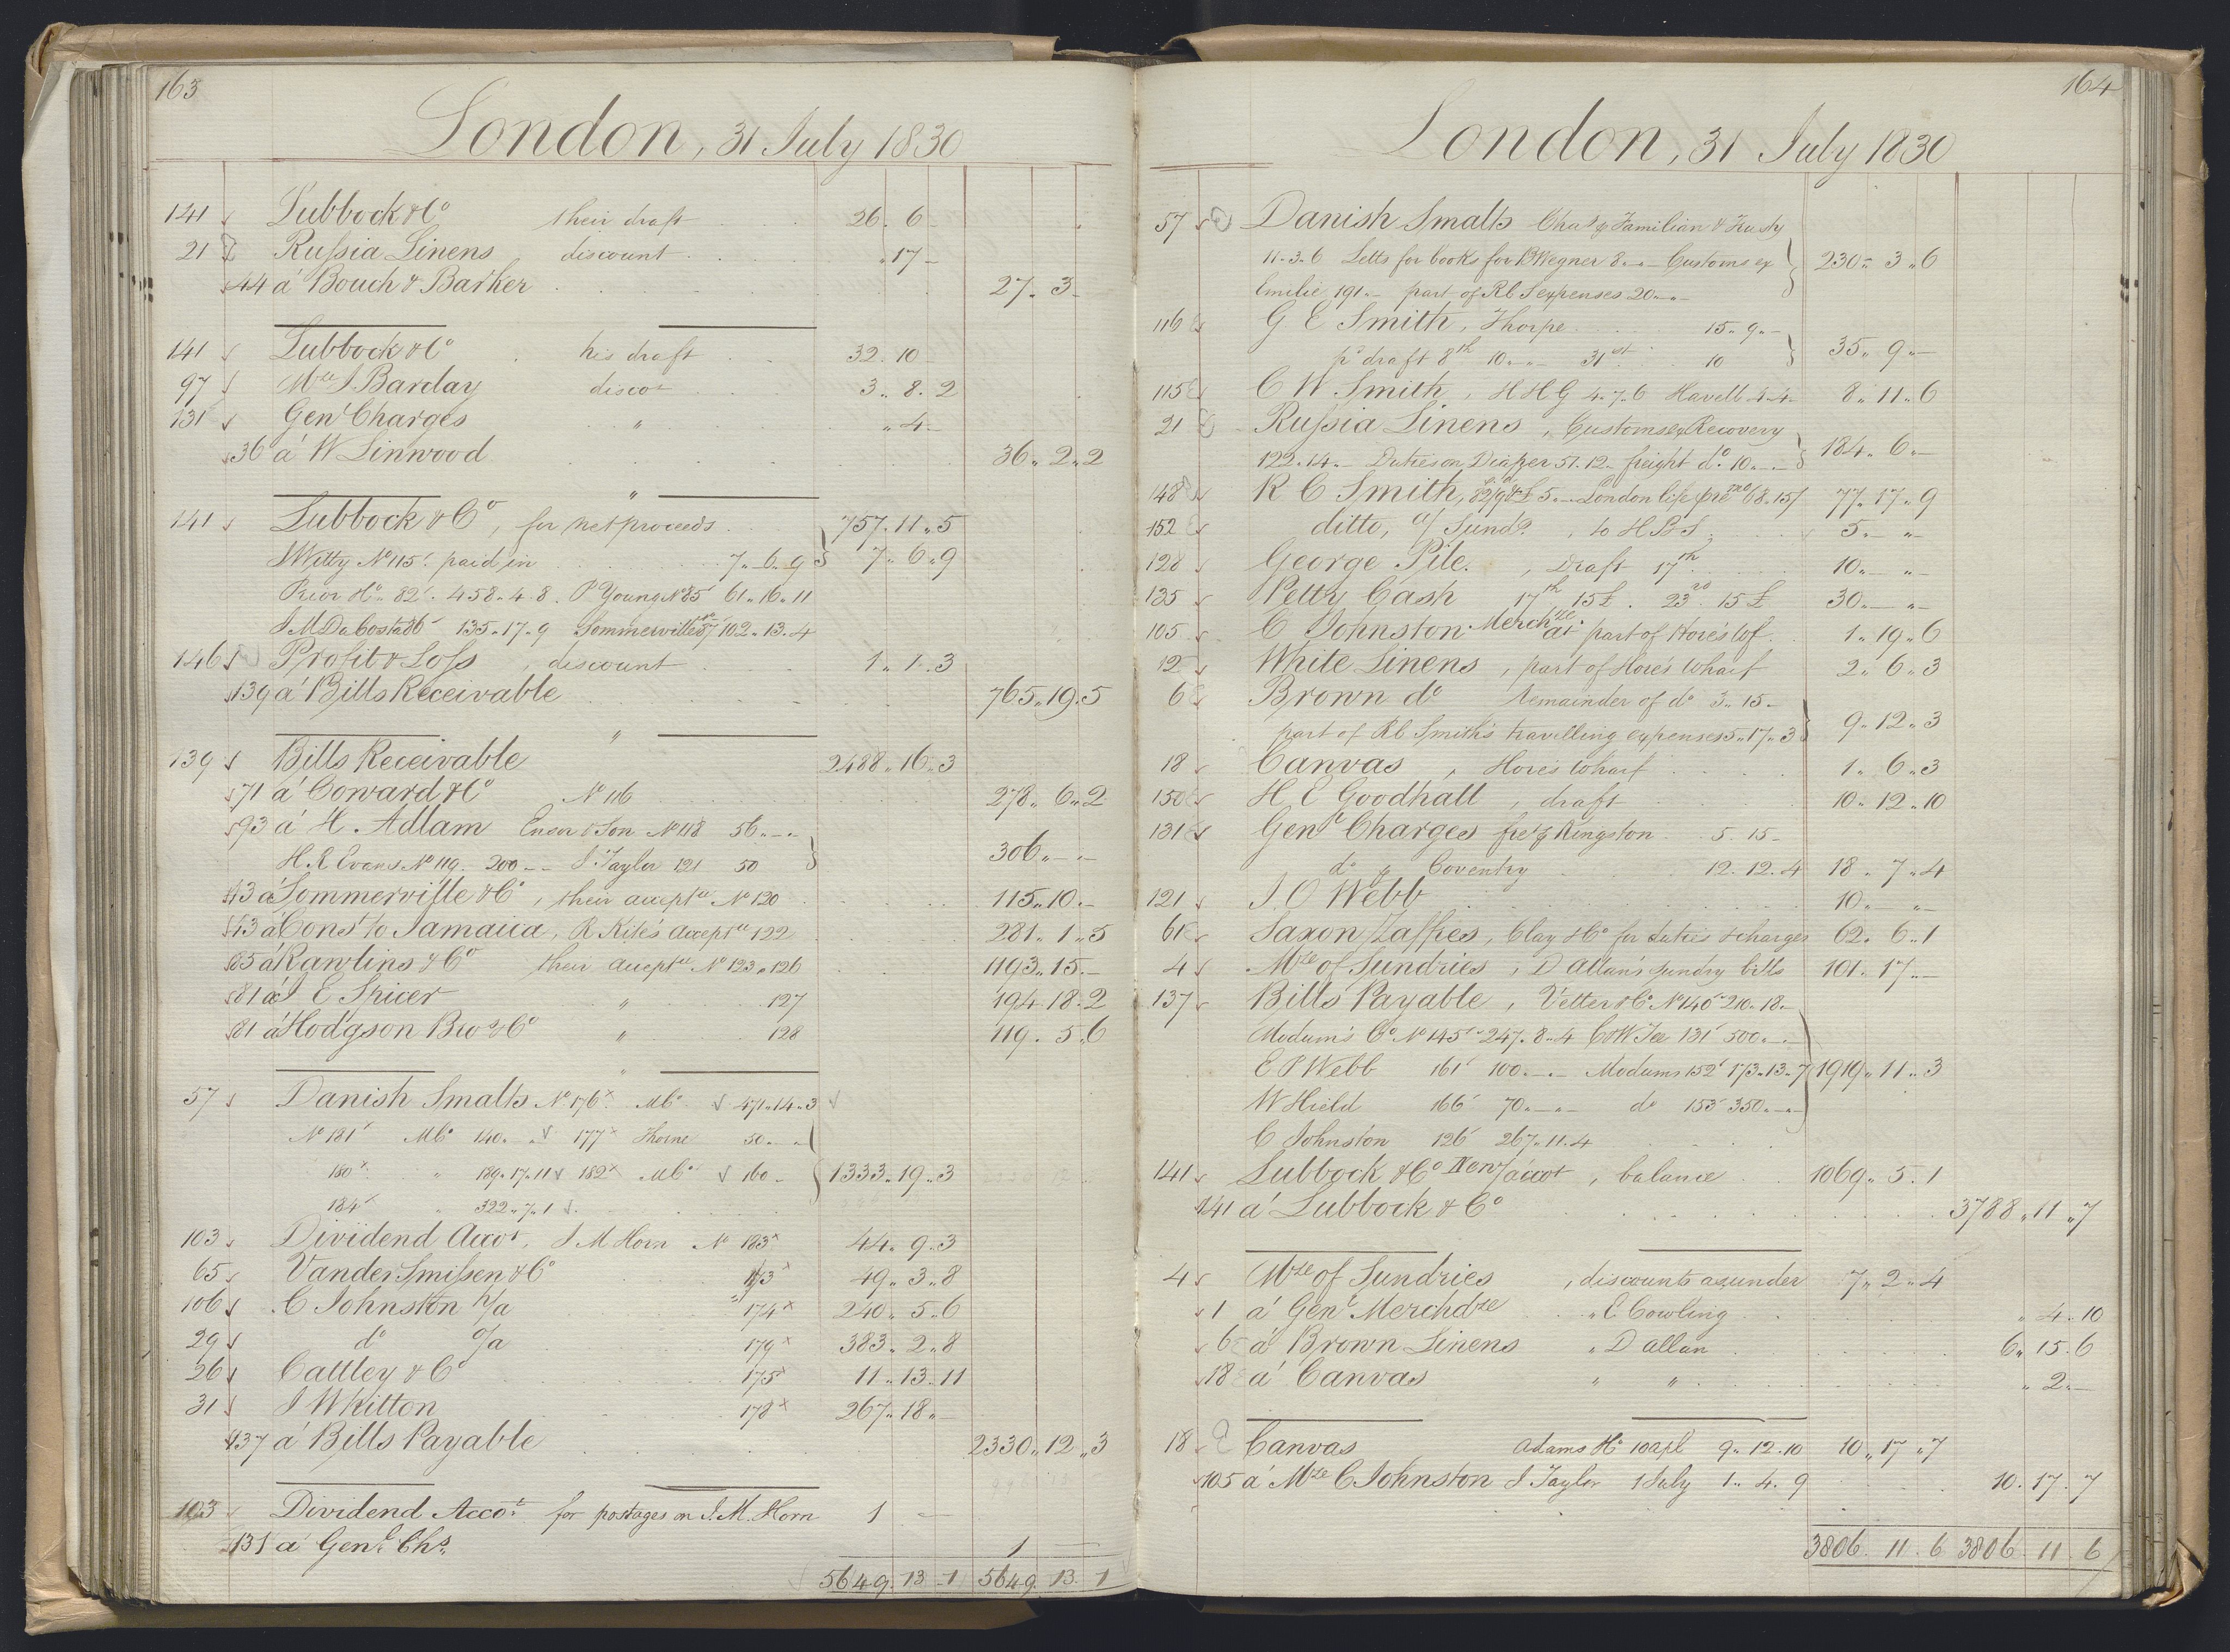 163
London, 31 July 1830
141 Lubbock & Co their draft 26 . 6 -
21 Russia Linens discount „ 17 -
44 á Bouch & Barker 27 . 3 -
141 Lubbock & Co his draft 32 . 10 -
97 Mze J. Barclay discot 3 „ 8 . 2
131 Genl Charges „ „ 4 -
36 á W Linwood 36 „ 2 „ 2
141 Lubbock & Co, for net proceeds 757 „ 11 „ 5
Witty No 115 paid in 7 „ 6 „ 9 7 „ 6 „ 9
Prior Ho 82 . 458 „ 4 . 8 . P Young No 85 61 „ 16 „ 11
J M DaCosta 86 135 „ 17 „ 9 Sommerville 87 102 „ 13 . 4
146 Profit & Loss, discount 1 „ 1 . 3
139 á Bills Receivable 765 „ 19 . 5
139 Bills Receivable 2488 „ 16 „ 3
71 á Coward & Co No 116 278 „ 6 „ 2
93 á H. Adlam Ensor & Son No 118 56 „ - „
H. E Evans No 119 . 200 - - J. Taylor 121 50 306 „ - „ -
43 á Sommerville & Co, their accepte No 120 115 „ 10 „ -
á Cons to Jamaica, R Kite's accepte 122 281 „ 1 „ 5
85 á Rawlins & Co their accepte No 123 „ 126 1193 „ 15 . -
81 á J E Spicer „ 127 194 . 18 . 2
81 á Hodgson Bro & Co „ 128 119 . 5 „ 6
57 Danish Smalts No 176 x MCo 471 „ 14 „ 3
No 181 MCo 140 „ „ 177 x Thorne 50 „ „
180 x „ 189 . 17 . 11 182 x MCo 160 - 1333 „ 19 „ 3
184 „ 322 „ 7 „ 1
103 Dividend Accot, J M Horn No 183 x 44 „ 9 . 3
65 VanderSmissen & Co 173 x 49 „ 3 „ 8
106 C Johnston n/a 174 x 240 „ 5 „ 6
29 do o/a 179 x 383 „ 2 „ 8
26 Cattley & Co 175 x 11 „ 13 „ 11
31 J Whitton 178 x 267 „ 18 „ -
137 á Bills Payable 2330 „ 12 „ 3
103 Dividend Accot for postages on J. M. Horn 1 -
131 á Genl Chs. 1 -
5649 . 13 - 1 5649 . 13 . 1
164
London, 31 July 1830
57 Danish Smalts Chas p Familian & Trusty
11 „ 3 „ 6 Letts for books for B Wegner 8 „ - „ - Customs ex 230 „ 3 „ 6
Emelie 191 „ - part of RCS expenses 20 „ - „ -
116 G E Smith, Thorpe 15 „ 9 „ -
pr draft 8th 10 „ - „ 31st 10 35 „ 9 „ -
115 C W Smith, H H G 4 . 7 . 6 Havell 4 „ 4 - 8 „ 11 „ 6
21 Russia Linens, Customs ex Recovery
122 . 14 „ - Duties on Diaper 51 . 12 - freight do 10 „ - „ - 184 „ 6 „ -
148 R C Smith, £5 „ - London life 68 . 15/ 77 „ 17 „ 9
152 ditto, a/ Sunds, to H B S 5 „ - „ -
128 George Pile, Draft 17th 10 „ - „ -
135 Petty Cash 17th 15£ . 23rd 15£ 30 „ - „ -
105 C Johnston Merchdze a/ part of Hore's Wf 1 „ 19 „ 6
12 White Linens, part of Hore's Wharf 2 „ 6 „ 3
6 Brown do Remainder of do 3 „ 15 -
part of RC Smith's travelling expenses 5 „ 17 „ 3 9 „ 12 „ 3
18 Canvas, Hore's Wharf 1 „ 6 „ 3
150 H E Goodhall, draft 10 „ 12 „ 10
131 Genl Charges fret p Kingston 5 . 15 -
do p Coventry 12 . 12 . 4 18 „ 7 „ 4
121 J O Webb 10 „ - „ -
61 Saxon Zaffres, Clay & Co for duties & charges 62 „ 6 „ 1
4 Mze of Sundries, D Allan's sundry bills 101 „ 17 „ -
137 Bills Payable, Vetter & Co No 146 210 „ 18 „ -
Modum's Co No 145 247 . 8 „ 4 C & W Tee 131 500 „ - „ -
E P Webb 161 100 „ - „ - Modums 152 173 „ 13 „ 7 1919 „ 11 „ 3
W Hield 166 70 „ - „ - do 153 350 „ - „ -
C Johnston 126 267 „ 11 . 4
141 Lubbock & Co New accot, balance 1069 „ 5 . 1
141 á Lubbock & Co 3788 „ 11 „ 7
4 Mze of Sundries, discounts as under 7 „ 2 „ 4
1 á Genl Merchdze „ E Cowling „ 4 „ 10
6 á Brown Linens „ D Allan 6 „ 15 „ 6
18 á Canvas „ „ „ 2 „ -
18 Canvas Adams Ho 10 Apl 9 „ 12 . 10 10 „ 17 „ 7
105 á Mze C Johnston J Taylor 1 July 1 „ 4 . 9 10 . 17 . 7
3806 . 11 . 6 3806 . 11 . 6